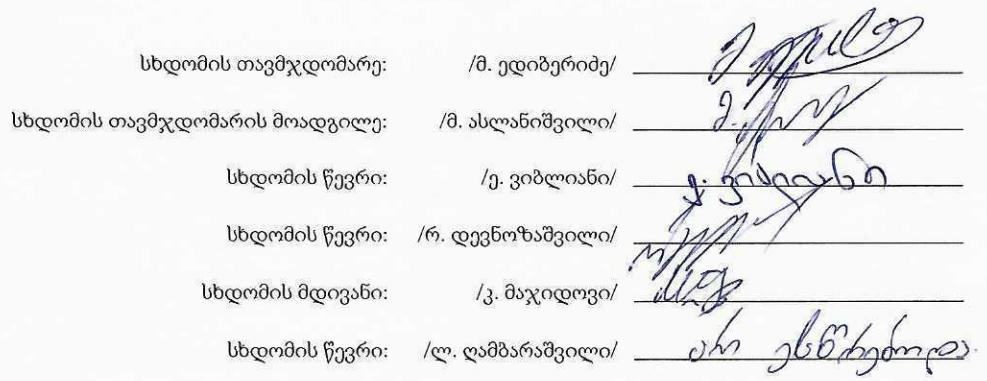 სხდომის თავმჯდომარე: /მ. ედიბერიძე/
სხდომის თავმჯდომარის მოადგილე: /მ. ასლანიშვილი/
სხდომის წევრი: /ე. ვიბლიანი/ ე. ვიბლიანი
სხდომის წევრი: /რ. დევნოზაშვილი/
სხდომის მდივანი: /კ. მაჯიდოვი/
სხდომის წევრი: /ლ. ღამბარაშვილი/ არ ესწრებოდა.